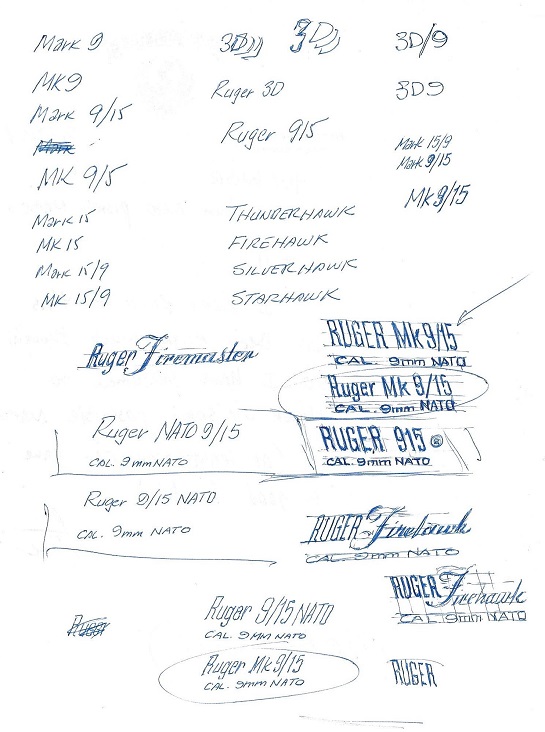 Mark 9
3D
3D
3D/9
MK9
Ruger 3D
3D9
Mark 9/15
Ruger 915
Mark
Mark 15/9
Mark 9/15
MK 9/5
Mk 9/15
Mark 15
THUNDERHAWK
MK 15
FIREHAWK
Mark 15/9
SILVERHAWK
MK 15/9
STARHAWK
RUGER Mk 9/15
CAL. 9mm NATO
Ruger Firemaster
Ruger Mk 9/15
CAL. 9mm NATO
Ruger NATO 9/15
CAL. 9mm NATO
RUGER 915 ®
CAL. 9mm NATO
Ruger 9/15 NATO
CAL. 9mm NATO
RUGER Firehawk
CAL. 9mm NATO
RUGER Firehawk
CAL. 9mm NATO
Ruger 9/15 NATO
CAL. 9mm NATO
Ruger
Ruger Mk 9/15
CAL. 9mm NATO
RUGER